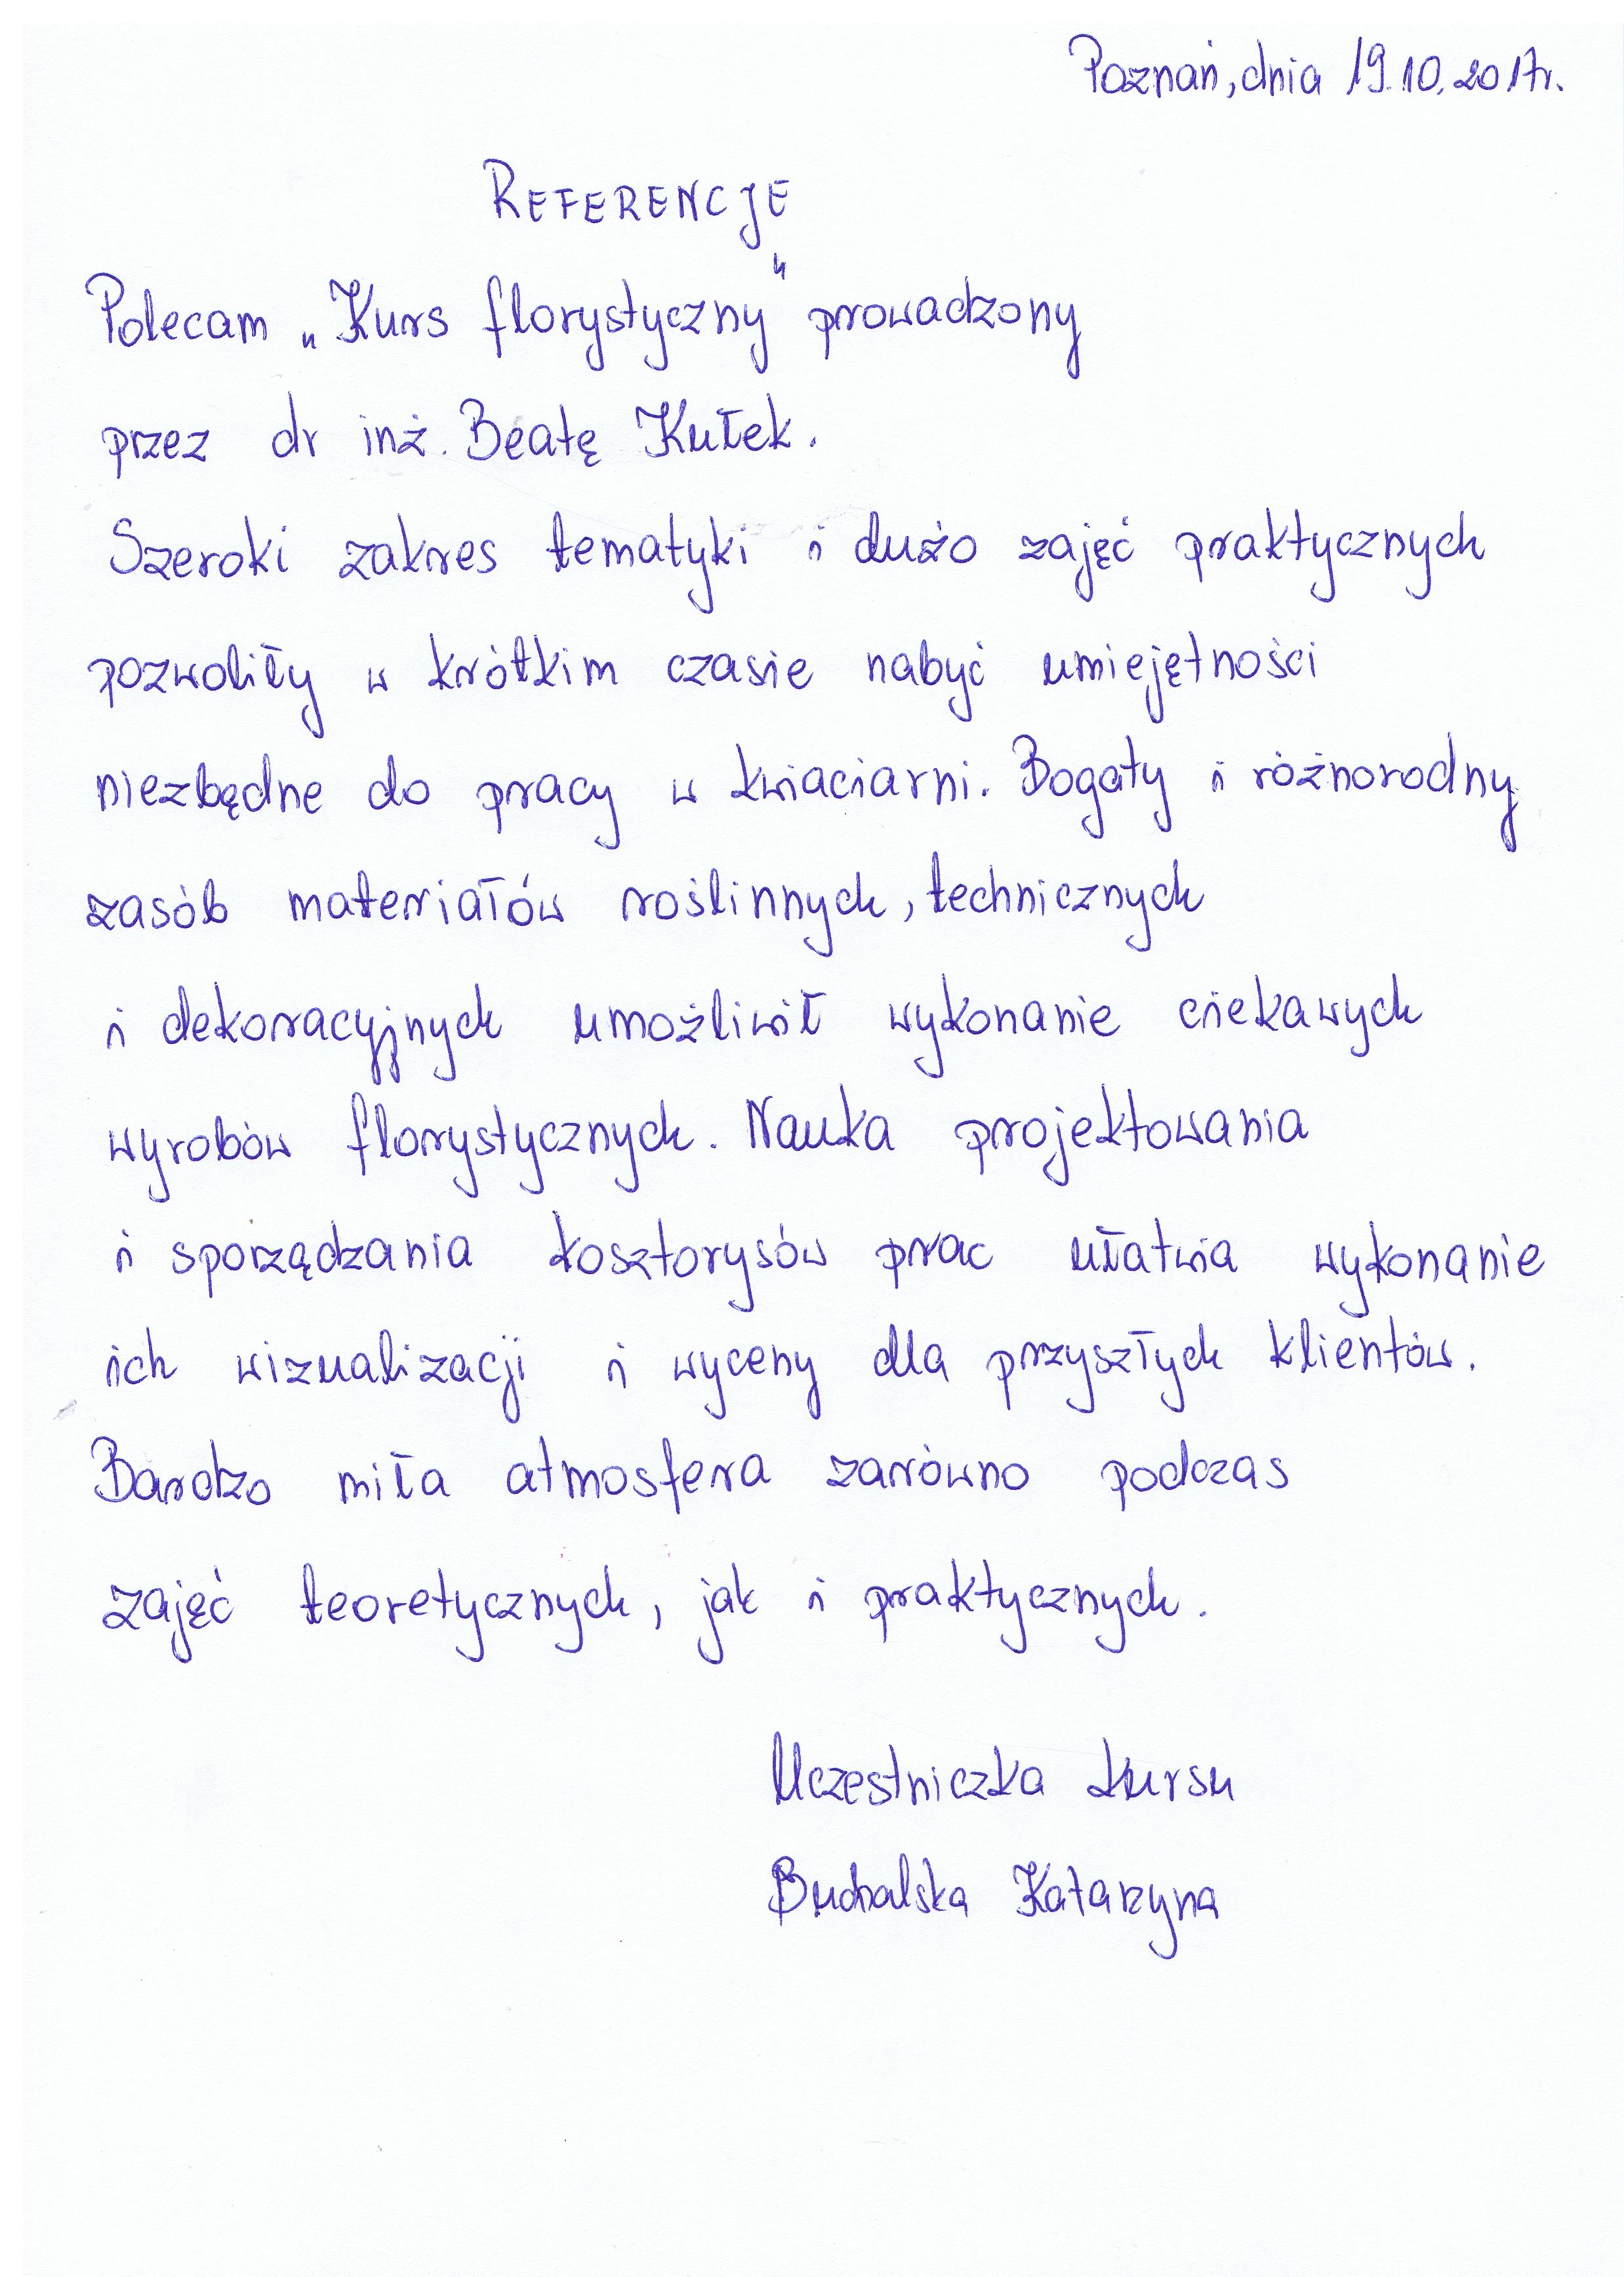 Poznań, dnia 19.10.2017r.
REFERENCJE
Polecam „Kurs florystyczny" prowadzony
przez dr inż. Beatę Kułek.
Szeroki zakres tematyki i dużo zajęć praktycznych
pozwoliły w krótkim czasie nabyć umiejętności
niezbędne do pracy w kwiaciarni. Bogaty i różnorodny
zasób materiałów roślinnych, technicznych
i dekoracyjnych umożliwił wykonanie ciekawych
wyrobów florystycznych. Nauka projektowania
i sporządzania kosztorysów prac ułatwia wykonanie
ich wizualizacji i wyceny dla przyszłych klientów.
Bardzo miła atmosfera zarówno podczas
zajęć teoretycznych, jak i praktycznych.
Uczestniczka kursu
Buchalska Katarzyna